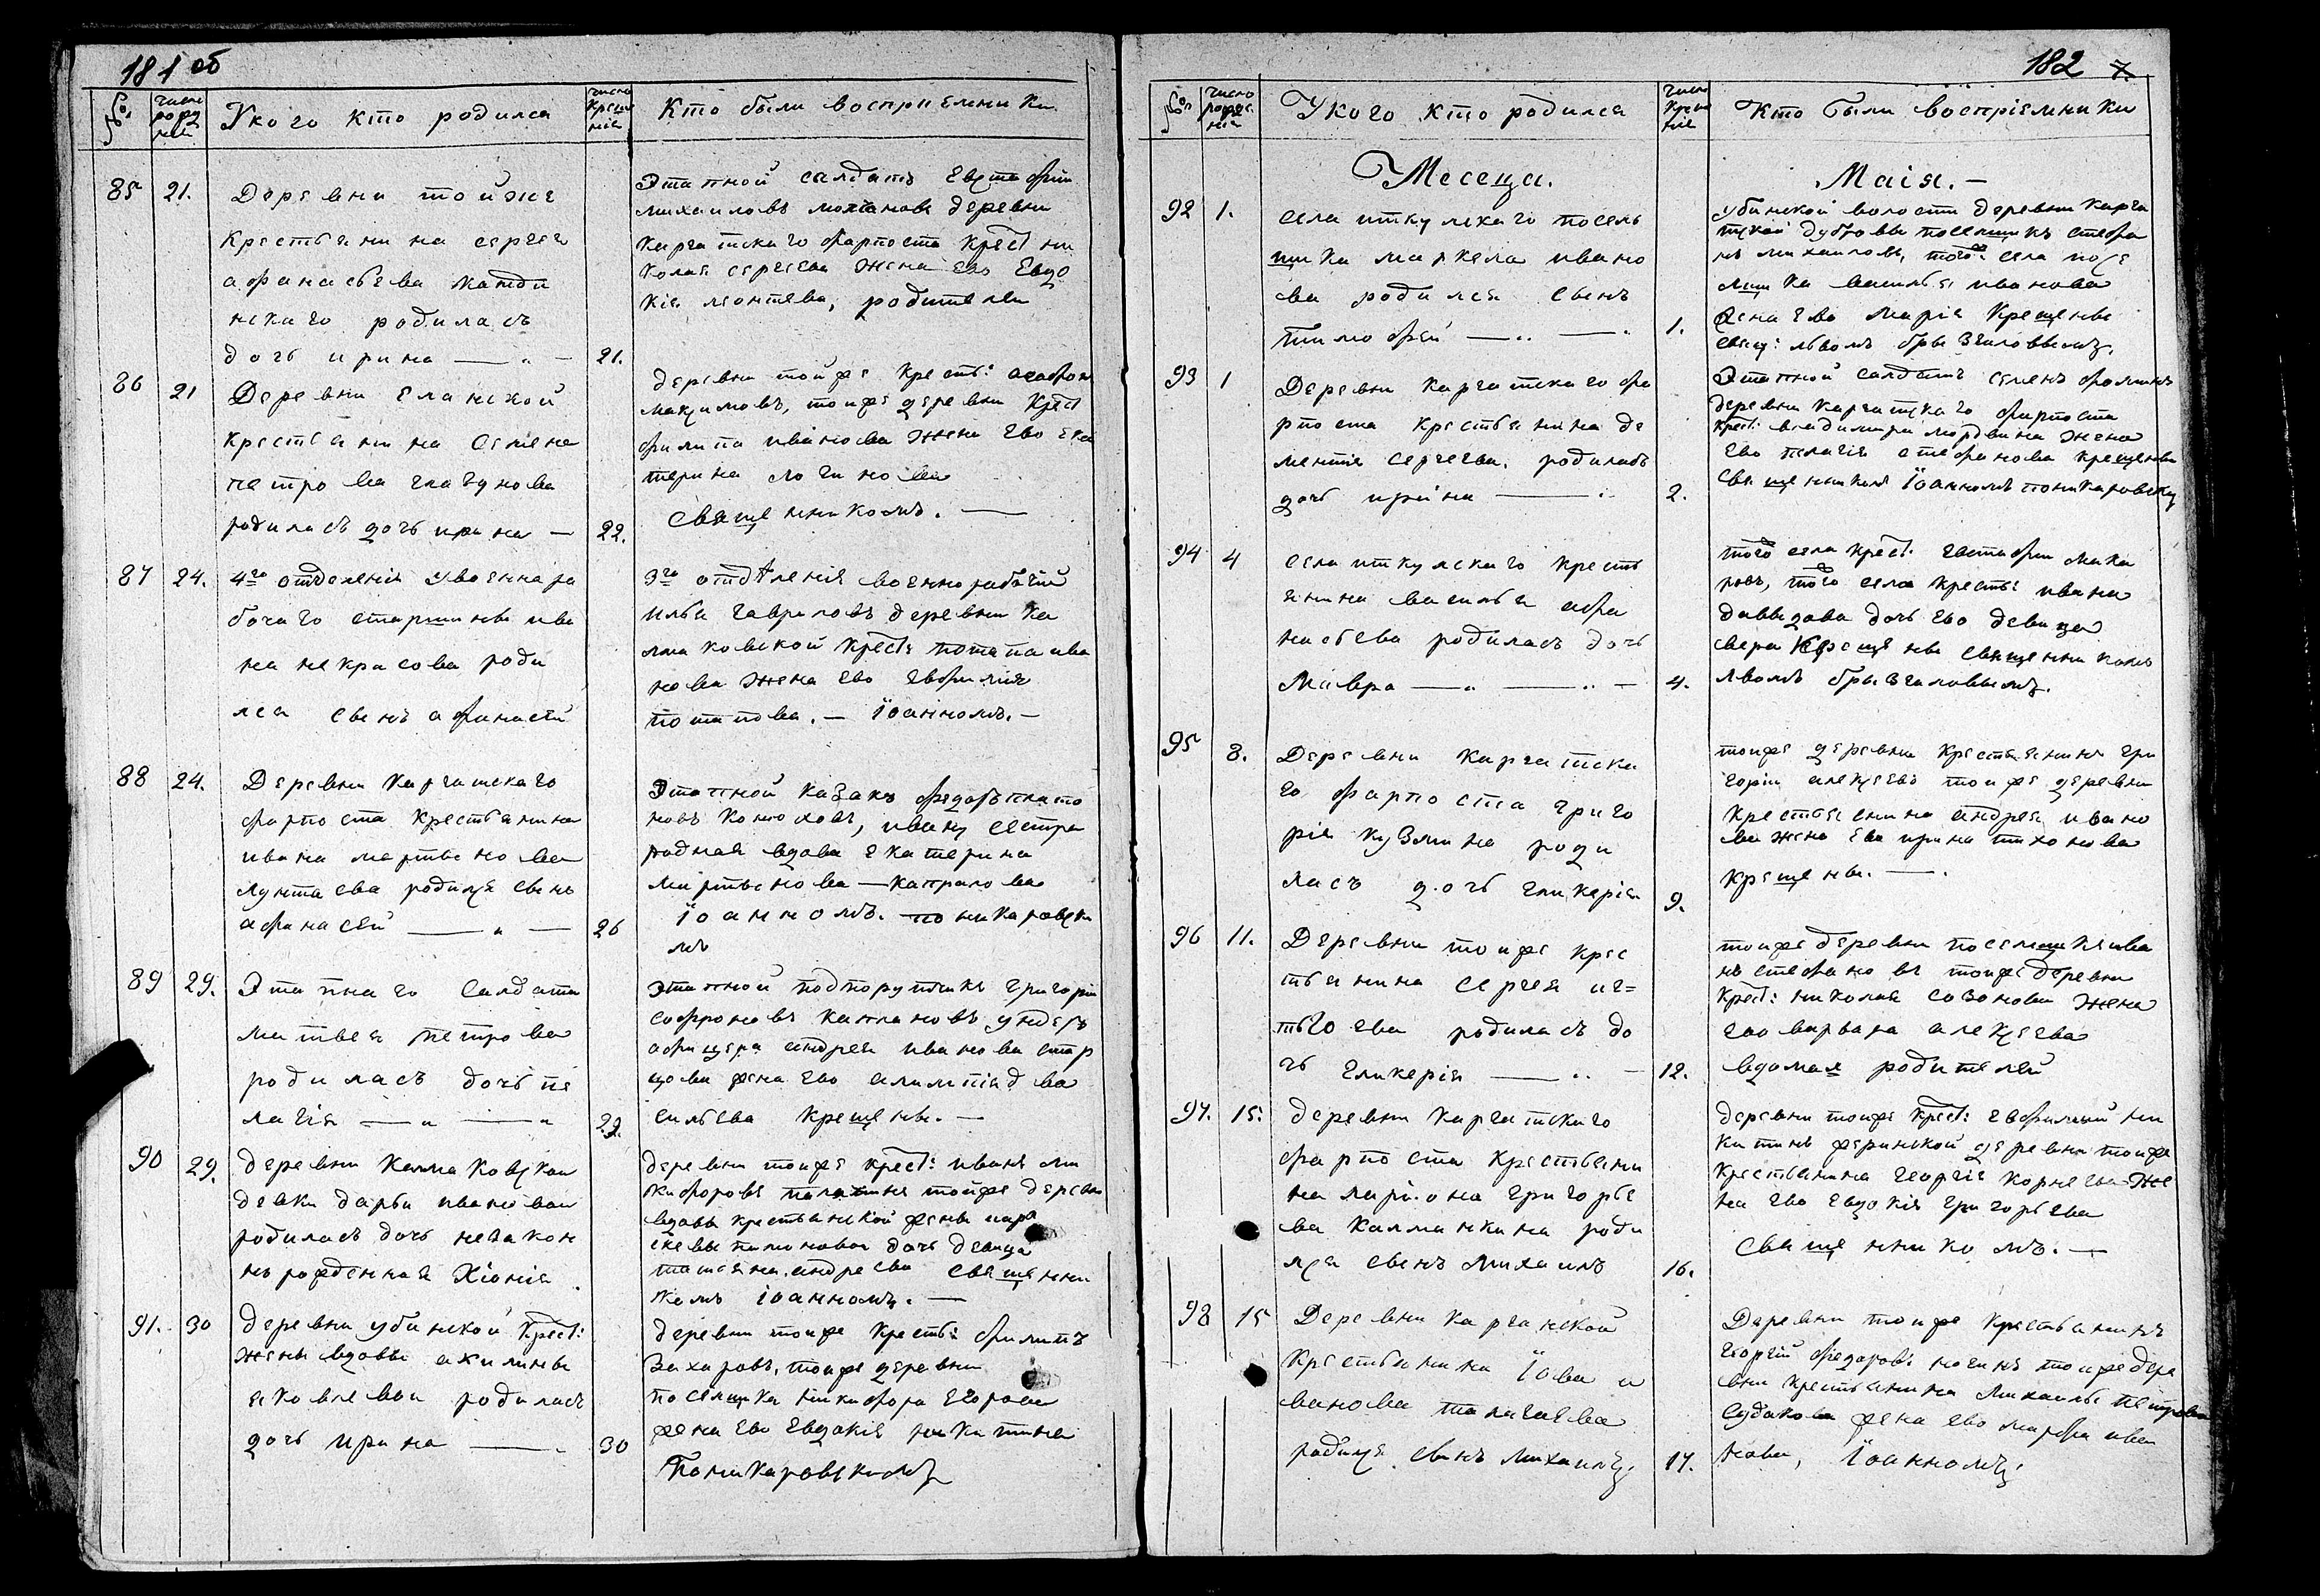 181 об
№
число рожденiй
У кого кто родился
число крещенiя
Кто были воспрiемники
85 21.
Деревни тойже
крестьянина сергея
афанасьева
нскаго родилась
дочь ирина — 21.
Этапной салдатъ евстафiй
михаиловъ деревни
каргатскаго фарпоста крест ни
колая сергеева жена ево Евдо
кiя леонтева, родители
86 21
Деревни еланской
крестьянина Семена
петрова глагунова
родилась дочь ирина — 22.
деревни тойже крестъ: агафон
макдимовъ, тойже деревни крест
филипа иванова жена ево ека
терина логинова
священникомъ. —
87 24.
4го отделенiя у военнара
бочаго старшины ива
на некрасова роди
лся сынъ афанасiй
3го отделенiя военнорабочiй
илья гавриловъ деревни ка
лмаковской крестъ потапа ива
нова жена ево евфимiя
потапова. — Iоанномъ. —
88 24.
Деревни каргатскаго
фарпоста крестьянина
ивана мартынова
лунтаева родился сынъ
афанасей — 26
Этапной казакъ федоръ плато
новъ конюховъ, ивану сестра
родная вдова екатерина
мартынова — капралова
Iоанномъ. поникаровски
мъ
89 29.
Этапнаго Салдата
матвея петрова
родилась дочь пе
лагiя — 29.
Этапной подпорутчикъ григорiй
софроновъ каплановъ ундеръ
афицера андрея иванова стар
цова жена ево алимпiада ва
сильева крещены. —
90 29.
деревни Калмаковскои
девки дарьи ивановои
родилась дочь незакон
норожденная Хiонiя
деревни тойже крестъ: иванъ ни
кифоровъ палахинъ тойже деревни
вдовы крестьянской жены пара
скевы пимоновои дочь девица
татьяна андреева священни
комъ iоанномъ. —
91. 30
деревни убинской крест:
жены вдовы акилины
яковлевои родилась
дочь ирина — 30
деревни тойже крестъ: филипъ
Захаровъ, тойже деревни
поселщика никифора егорова
жена ево евдакiя никитина
Поникаровскимъ
182 7.
№
число рожденiя
У кого кто родился
число крещенiя
Кто были воспрiемники
Месеца. Маiя. —
92 1.
села иткулскаго посель
щика маркела ивано
ва родился сынъ
тимофей — 1.
убинской волости деревни карга
тской дубровы поселщикъ стефа
нъ михаиловъ, того села посе
лщика василья иванова
жена ево Марiя Крещены
свящ: львомъ брызгаловымъ.
93 1
Деревни каргатскаго фа
рпоста крестьянина де
ментiя сергеева. родилась
дочь ирина — 2.
Этапной салдатъ семенъ фоминъ
деревни каргатскаго фарпоста
крест: владимира мордвина жена
ево пелагiя стефанова крещены
священникомъ Iоанномъ поникаровски
94 4
села иткулскаго кресть
янина василья афа
насьева родилась дочь
Мавра — 4.
того села крест: евстафiи мака
ровъ, того села крестъ: ивана
давыдова дочь ево девица
вера крещены священникомъ
львомъ брызгаловымъ.
95 8.
Деревни каргатска
го фарпоста григо
рiя кузмина роди
лась дочь гликерiя 9.
тойже деревни крестьянинъ гри
горiи алексеевъ тойже деревни
крестьянина андрея ивано
ва жена ева ирина тихонова
крещены. —
96 11.
Деревни тойже крес
тьянина Сергея иг=
тьгоева родилась до
чь гликерiя — 12.
тойже деревни поселщикъ ива
нъ стефановъ тойже деревни
крест: николая созонова жена
ево варвара алексеева
вдомая родителей
97. 15.
деревни каргатскаго
фарпоста крестьяни
на ларiона григорье
ва калманкина роди
лся сынъ михаилъ 16.
деревни тойже крест: евфимiй ни
китинъ жеринской деревни тойже
крестьянина георгiя корнева же
на ево евдокiя григорьева
священникомъ. —
98 15
Деревни карганской
крестьянина Iова и
ванова талагаева
родился сынъ михаилъ 17.
Деревни тойже крестьянинъ
георгiй федоровъ ногинъ тойже дере
вни крестьянина михаилы петрова
судакова жена ево марфа ива
нова, Iоанномъ